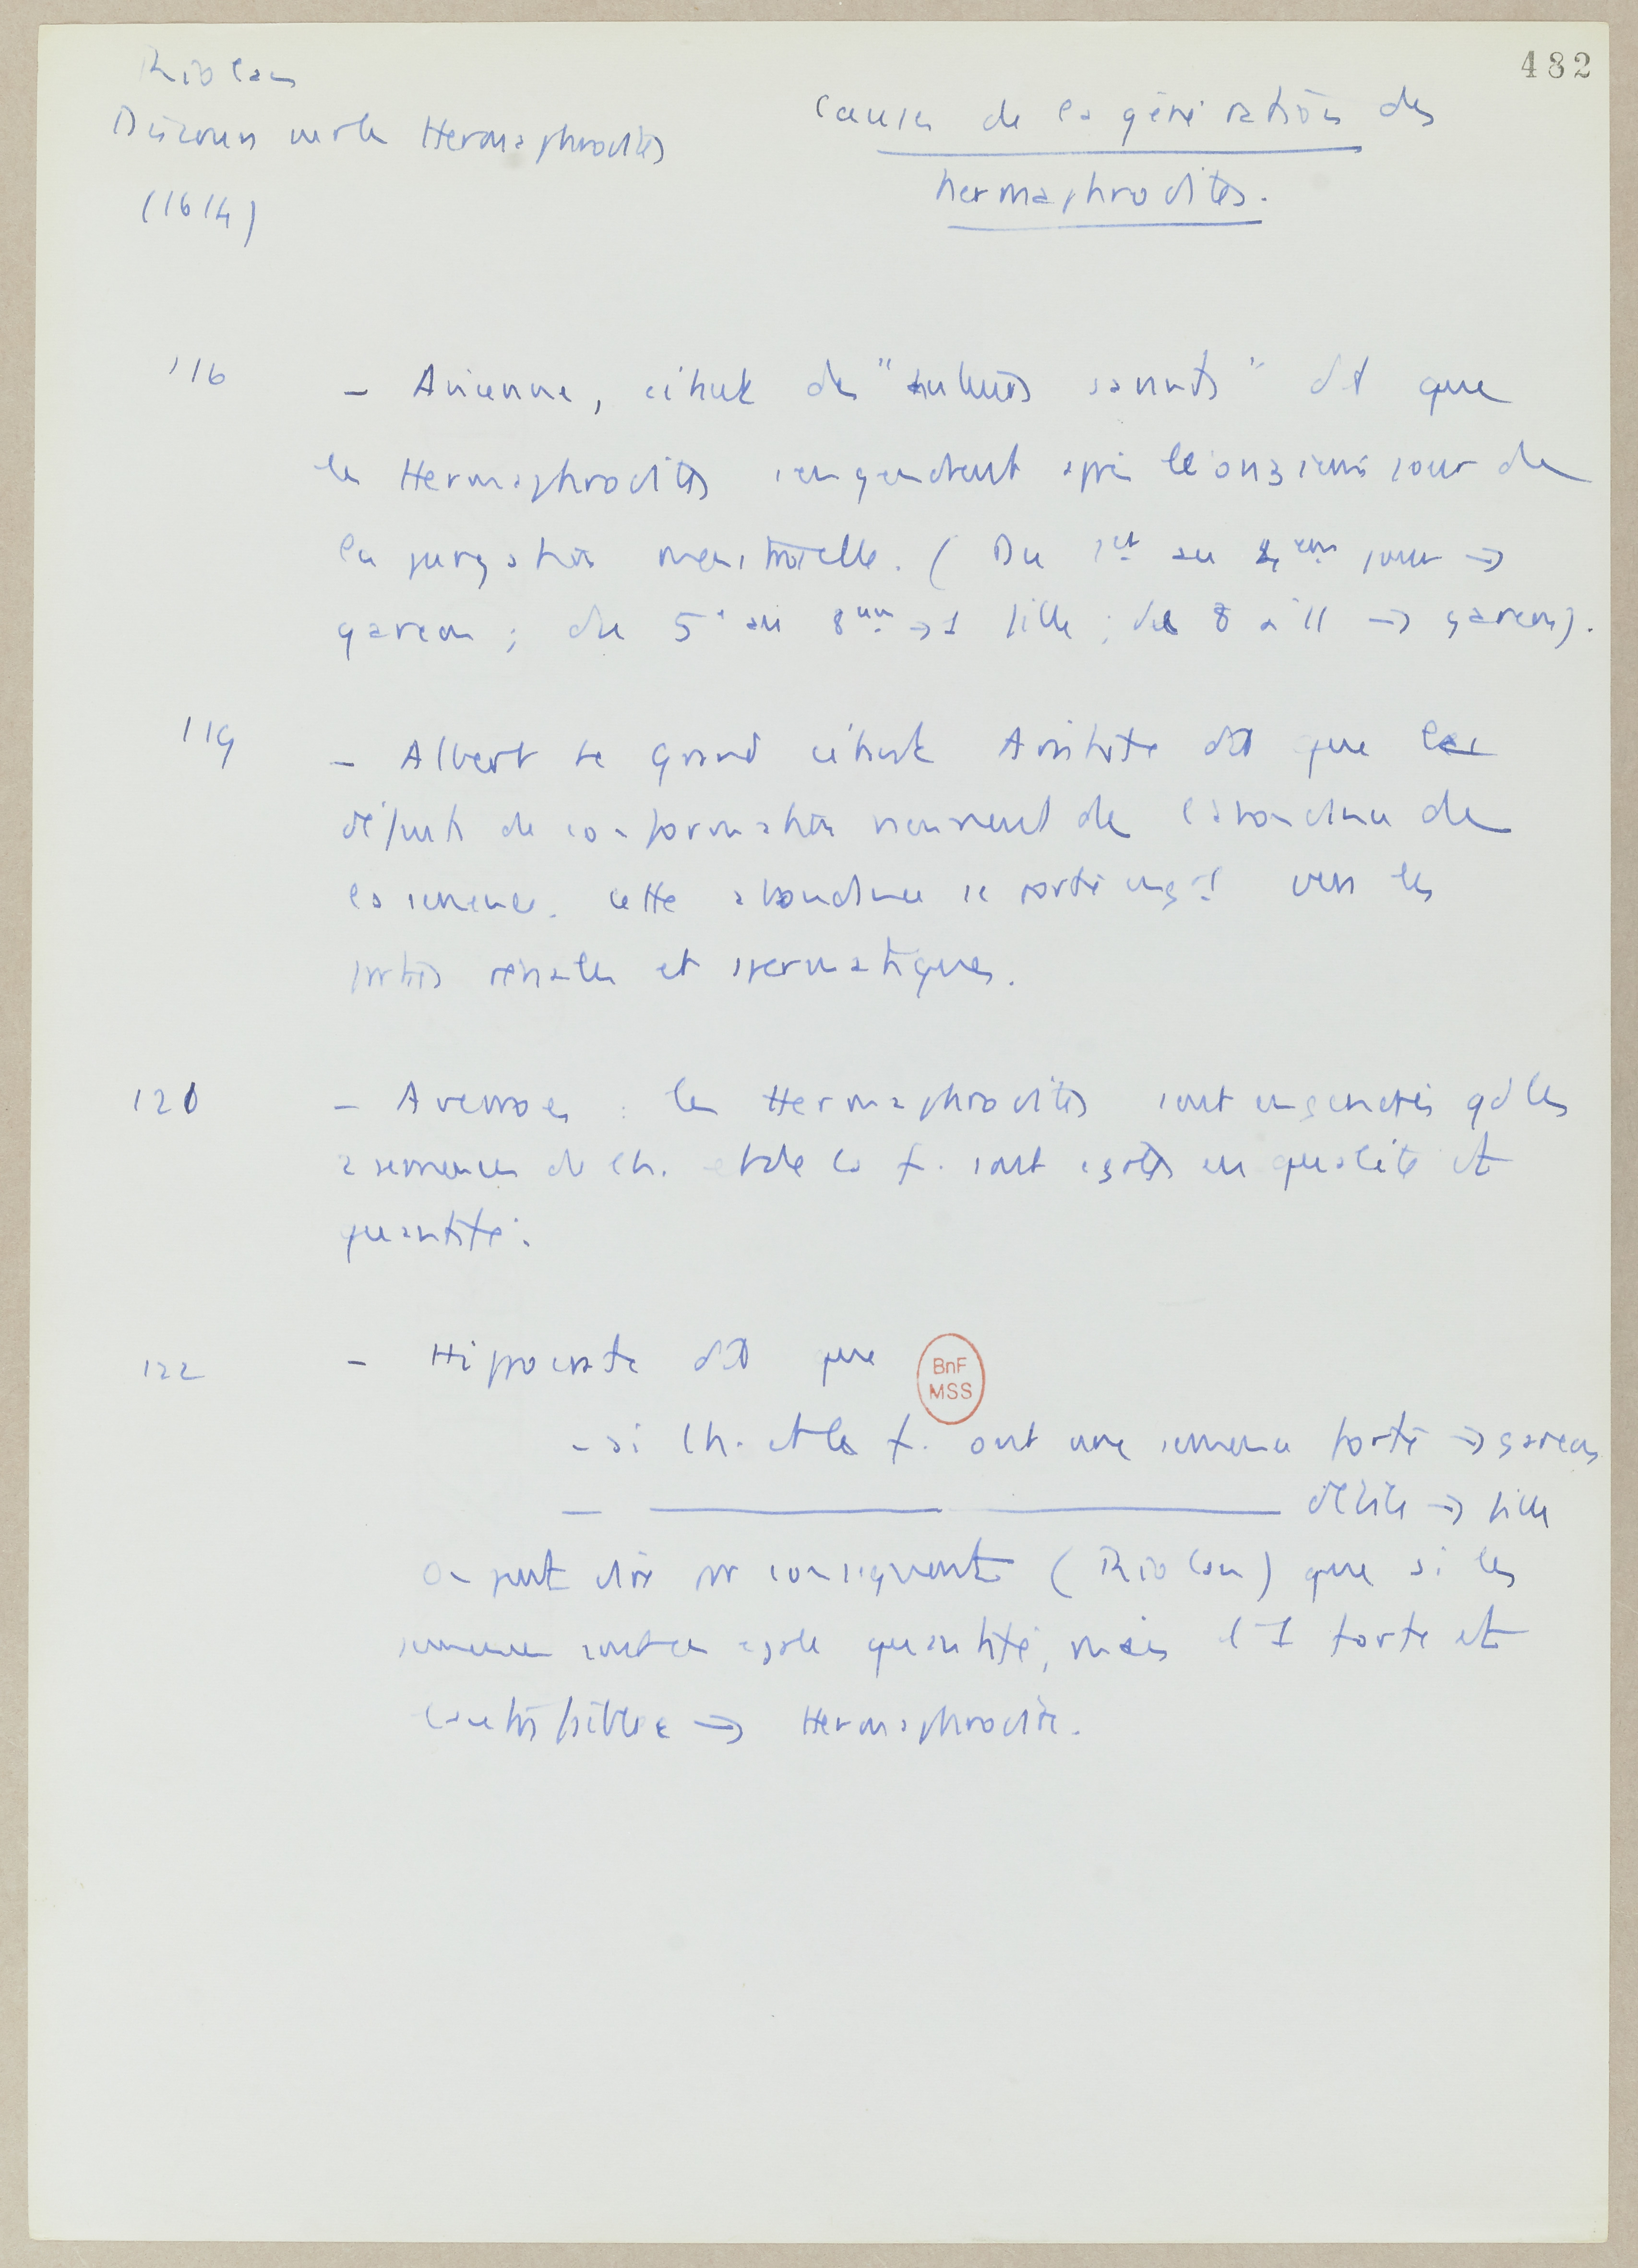 482
Riolan
Discours sur les Hermaphrodites
(1614)
Causes de la génération des
hermaphrodites.
116
- Avicenne, citant des "auteurs savants" dit que
les Hermaphrodites s'engendrent après le onzième jour de
la purgation menstruelle. (Du 1er au 4ème jour →
garçon ; du 5e au 8ème → 1 fille ; de 8 à 11 → garçon).
119
- Albert le Grand citant Aristote dit que les
défauts de conformation viennent de l'abondance de
la semence. Cette abondance se porte vers les
parties rénales et spermatiques.
120
- Averroes : les Hermaphrodites sont engendrés qd les
2 semences de l'h. et de la f. sont égales en qualité et
quantité.
122
- Hippocrate dit que
BnF
MSS
- si l'h. et la f. ont une semence forte → garçon
- débile → fille
On peut dire par conséquent (Riolan) que si les
semences sont en égale quantité, mais l'1 forte et
l'autre faible → Hermaphrodite.